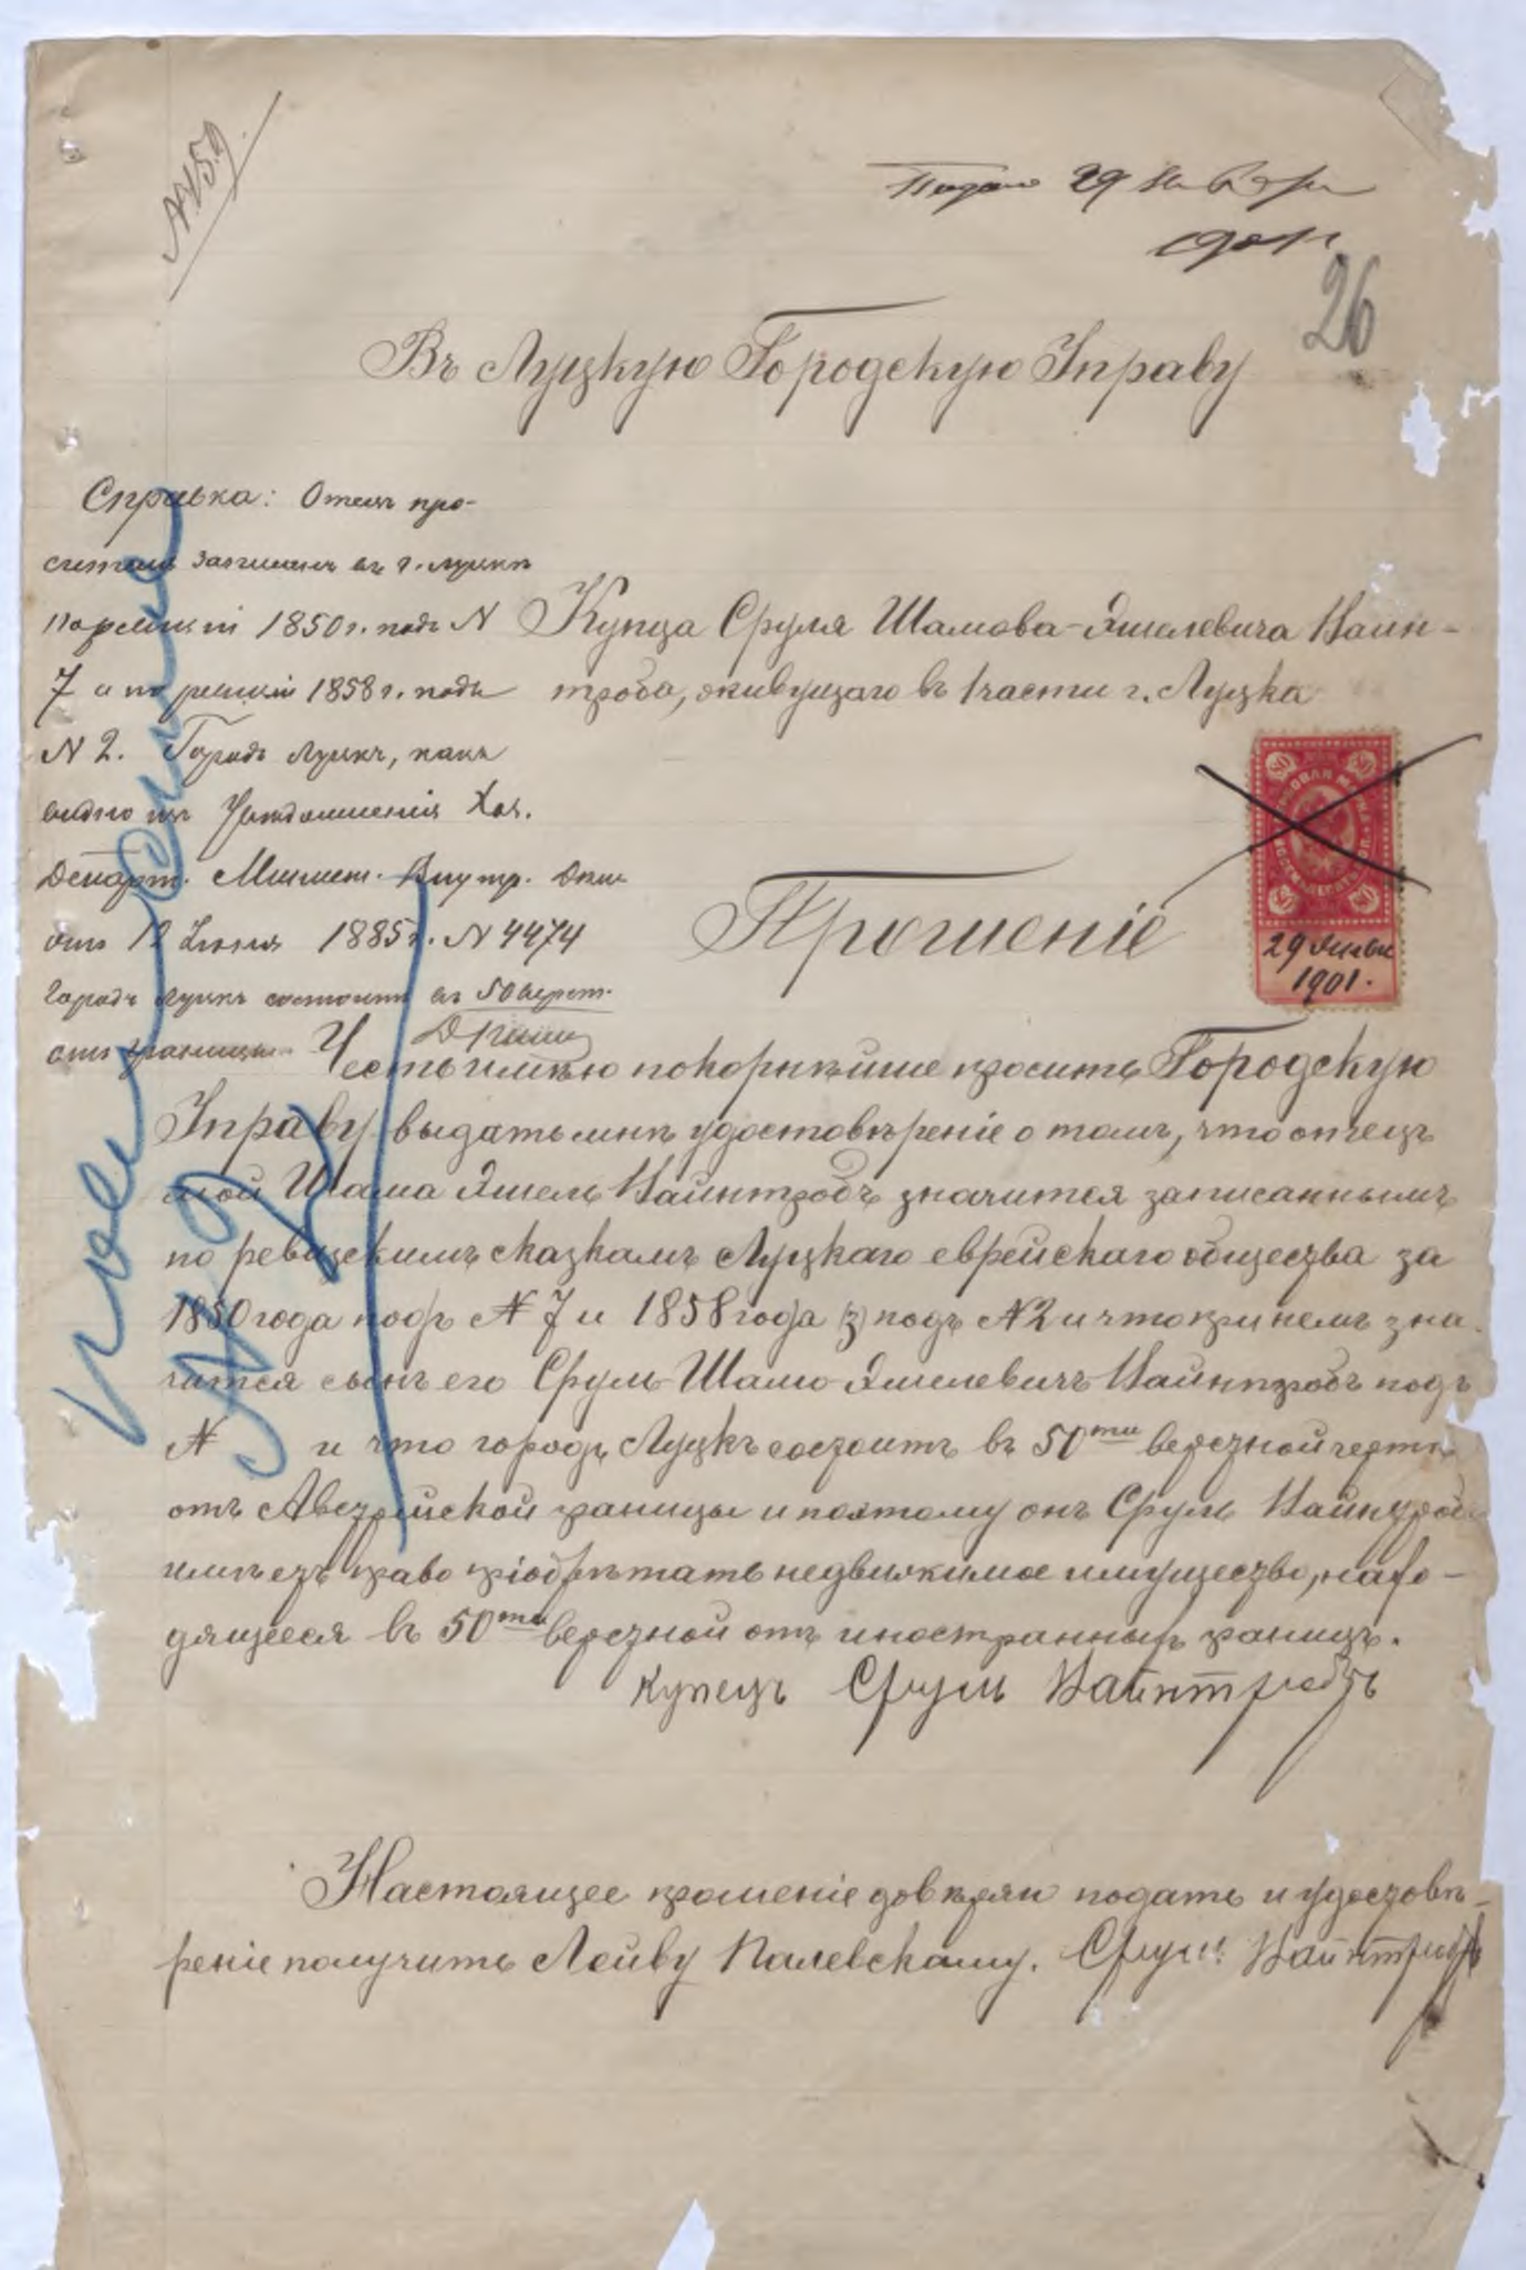 № 159
Подано 29 Января
1901 г.
26
Въ Луцкую Городскую Управу
Справка: Отецъ про-
сителя записанъ въ г. Луцкѣ
по ревизіи 1850 г. подъ №
7 и по ревизіи 1858 г. подъ
№ 2. Городъ Луцкъ, какъ
видно изъ Увѣдомленія Хоз.
Департ. Минист. Внутр. Дѣлъ
отъ 12 1885 г. № 4474
городъ Луцкъ состоитъ въ 50 верст.
отъ границы
Купца Сруля Шамова-Яшелевича Вайн-
троба, живущаго въ 1 части г. Луцка
80 80
80 80
29 Января
1901.
Прошеніе
Честь имѣю покорнѣйше просить Городскую
Управу выдать мнѣ удостовѣреніе о томъ, что отецъ
мой Шама Яшель Вайнтробъ значится записаннымъ
по ревизскимъ сказкамъ Луцкаго еврейскаго общества за
1850 года подъ № 7 и 1858 года подъ № 2 и что при немъ зна-
чится сынъ его Сруль Шамо-Яшелевичъ Вайнтробъ подъ
№ и что городъ Луцкъ состоитъ въ 50ти верстной чертѣ
отъ Австрійской границы и поэтому онъ Сруль Вайнтробъ
имѣетъ право пріобрѣтать недвижимое имущество, нахо-
дящееся въ 50ти верстной отъ иностранныхъ границъ.
Купецъ Сруль Вайнтробъ
Настоящее прошеніе довѣряю подать и удостовѣ-
реніе получить Лейву Палевскому. Сруль Вайнтробъ